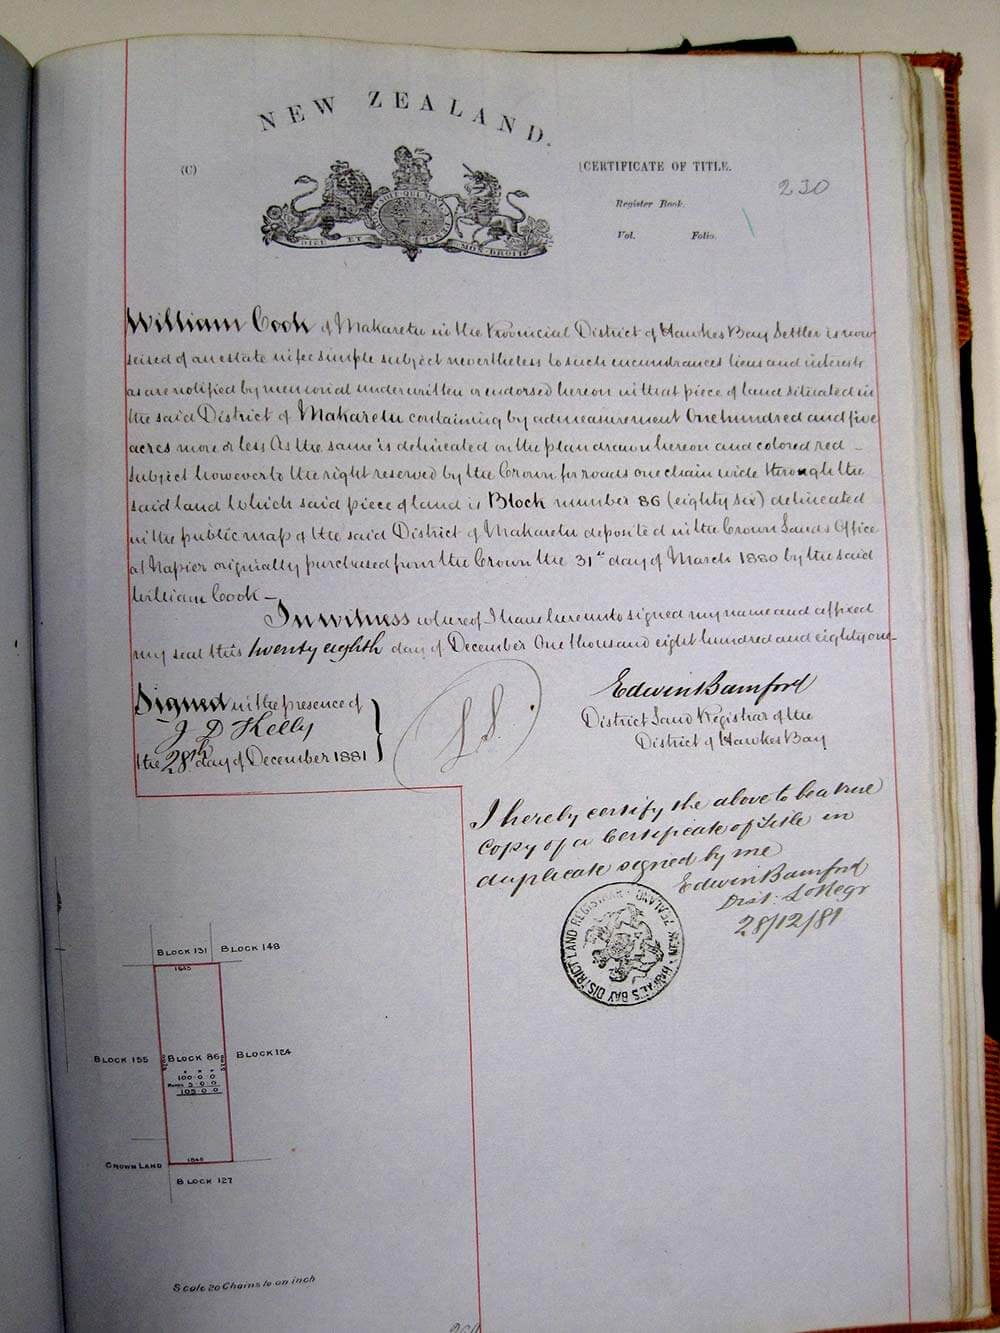 NEW ZEALAND.
(C)
CERTIFICATE OF TITLE.
230
Register Book.
Vol. Folio.
HONI SOIT QUI MAL Y
DIEU ET MON DROIT
William Cook of Makaretu in the Provincial District of Hawkes Bay Settler is now
seised of an estate in fee simple subject nevertheless to such incumbrances liens and interests
as are notified by memorial underwritten or endorsed hereon in that piece of land situated in
the said District of Makaretu containing by admeasurement One hundred and five
acres more or less As the same is delineated on the plan drawn hereon and colored red
subject however to the right reserved by the Crown for roads one chain wide through the
said land Which said piece of land is Block number 86 (eighty six) delineated
in the public map of the said District of Makaretu deposited in the Crown Lands Office
at Napier originally purchased from the Crown the 31st day of March 1880 by the said
William Cook —
In witness whereof I have hereunto signed my name and affixed
my seal this twenty eighth day of December One thousand eight hundred and eighty one
Signed in the presence of
J D Kelly
the 28th day of December 1881
L.S.
Edwin Bamford
District Land Registrar of the
District of Hawkes Bay
I hereby certify the above to be a true
copy of a Certificate of Title in
duplicate signed by me
Edwin Bamford
Dist. L Regr
28/12/81
HAWKE'S BAY DISTRICT LAND REGISTRAR · NEW ZEALAND
BLOCK 131 BLOCK 148
BLOCK 155 BLOCK 86 BLOCK 124
A R P
100 0 0
Roads 5 0 0
105 0 0
CROWN LAND
BLOCK 127
Scale 20 Chains to an inch